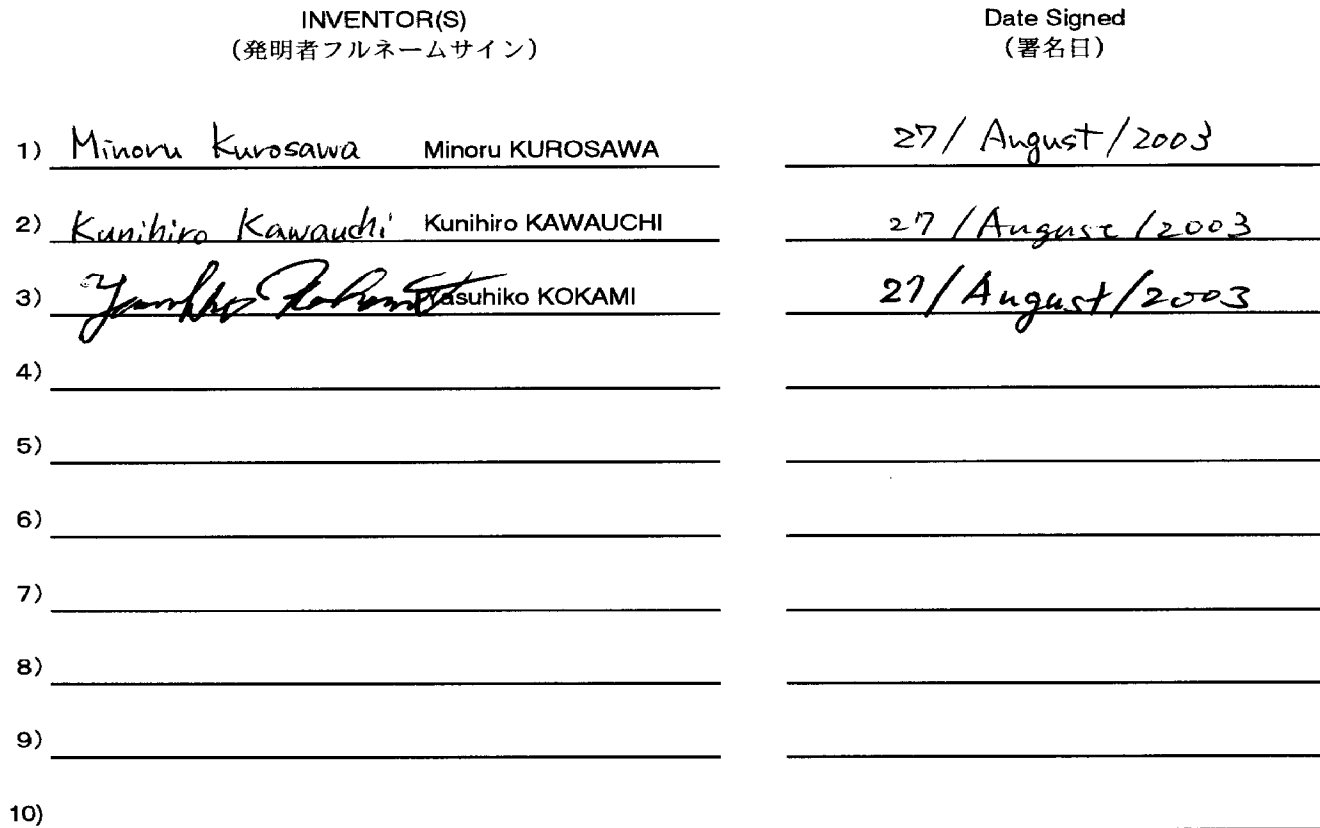 INVENTOR(S) Date Signed
(発明者フルネームサイン) (署名日)
1) Minoru Kurosawa Minoru KUROSAWA 27/August/2003
2) Kunihiro Kawauchi Kunihiro KAWAUCHI 27/August/2003
3) Yasuhiko Kokami Yasuhiko KOKAMI 27/August/2003
4)
5)
6)
7)
8)
9)
10)